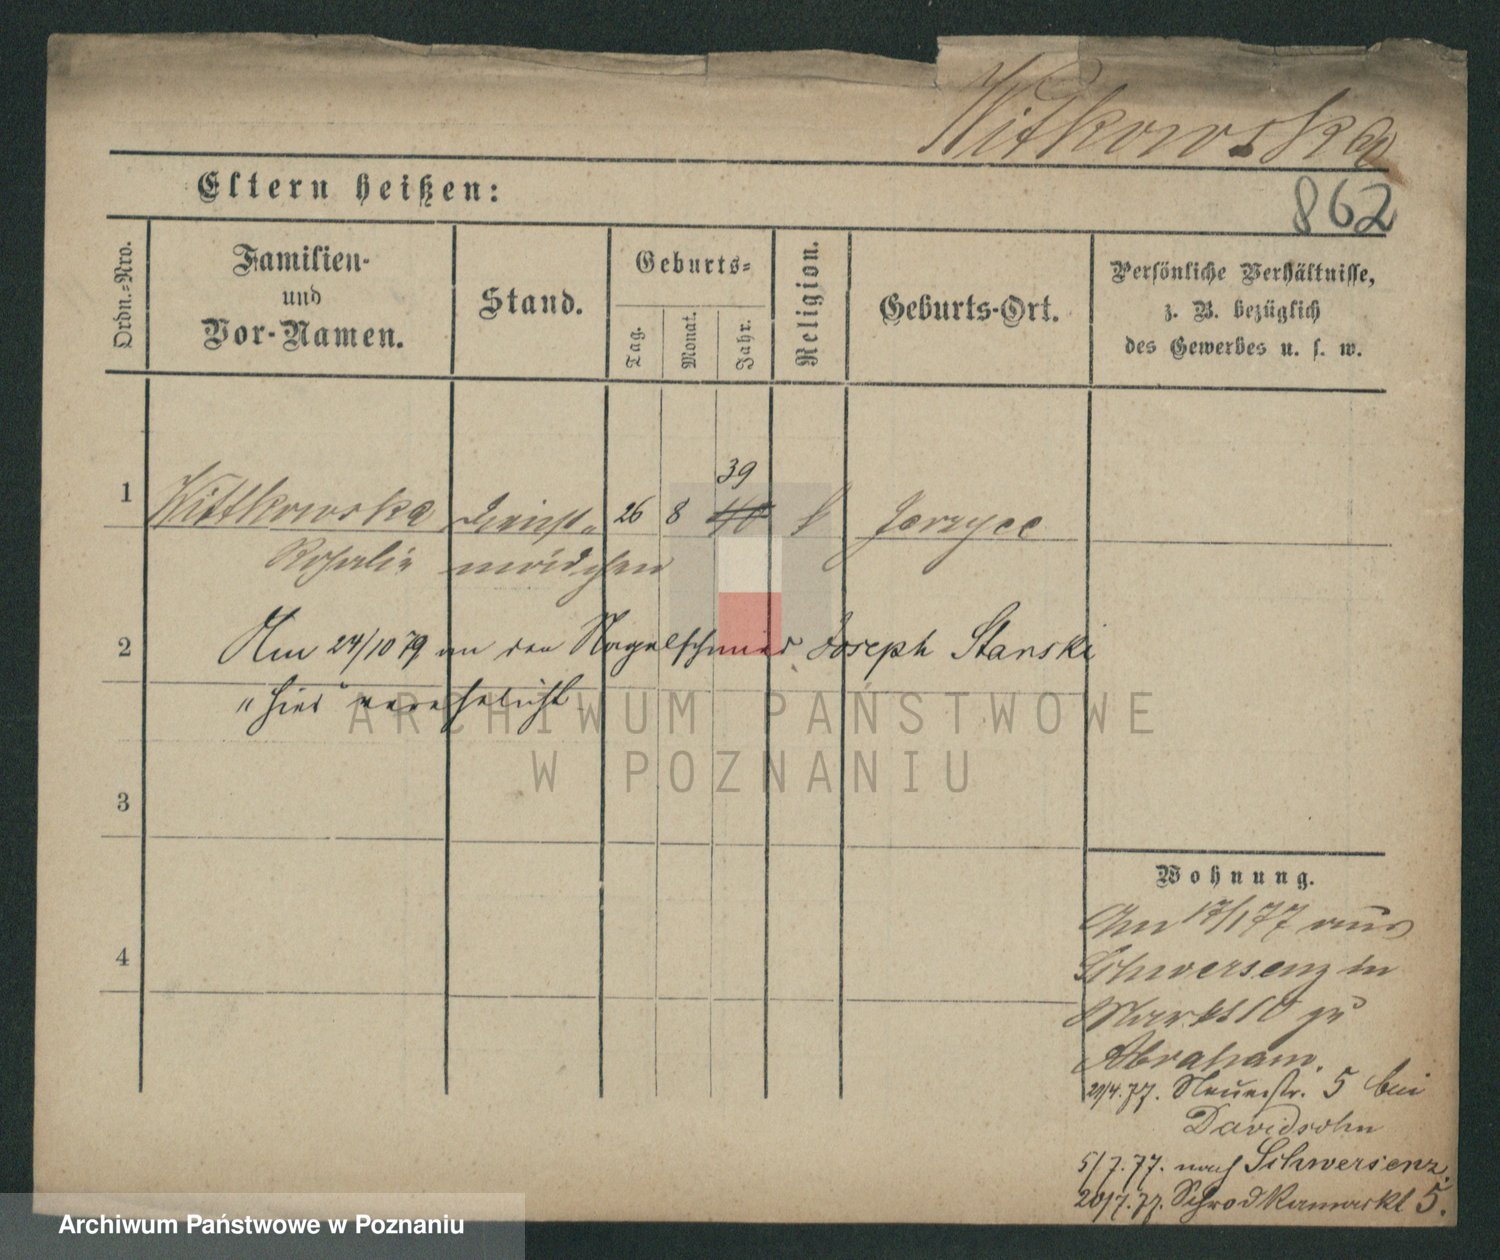 Witkowska
862
Eltern heißen:
Ordn.-Nro.
Familien-
und
Vor-Namen.
Stand.
Geburts-
Tag.
Monat.
Jahr.
Religion.
Geburts-Ort.
Persönliche Verhältnisse,
z. B. bezüglich
des Gewerbes u. s. w.
39
1 Wittkowska Dienst- 26 8 40 k Jerzyce
Rosalie mädchen
2 Am 24/10 79 an den Nagelschmied Joseph Stanski
"hier" verehelicht
3
4
Wohnung.
Am 17/1 77 aus
Schwersenz in
Markt 10 zu
Abraham.
20/4. 77. Neuestr. 5 bei
Davidsohn
5/7. 77. nach Schwersenz.
20/7. 77. Schrodkamarkt 5.
ARCHIWUM PAŃSTWOWE
W POZNANIU
Archiwum Państwowe w Poznaniu